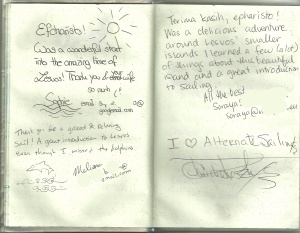 Efcharisto!
Was a wonderful start
into the amazing time of
Lesvos! Thank you &
so much!
gmail.com
Thank you for a good & relaxing
Sail! A great introduction to Lesvos
Even though I missed the dolphins.
Melissa
gmail.com
Terima kasih, epharisto!
Was a delicious adventure
around Lesvos' smaller
islands. I learned a few (a lot)
of things about this beautiful
island and a great introduction
to sailing.
All the best
Soraya!
soraya@
I ♡ Alternate Sailing